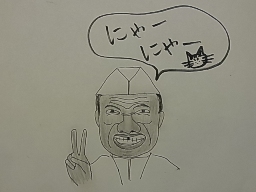 にゃー
にゃー